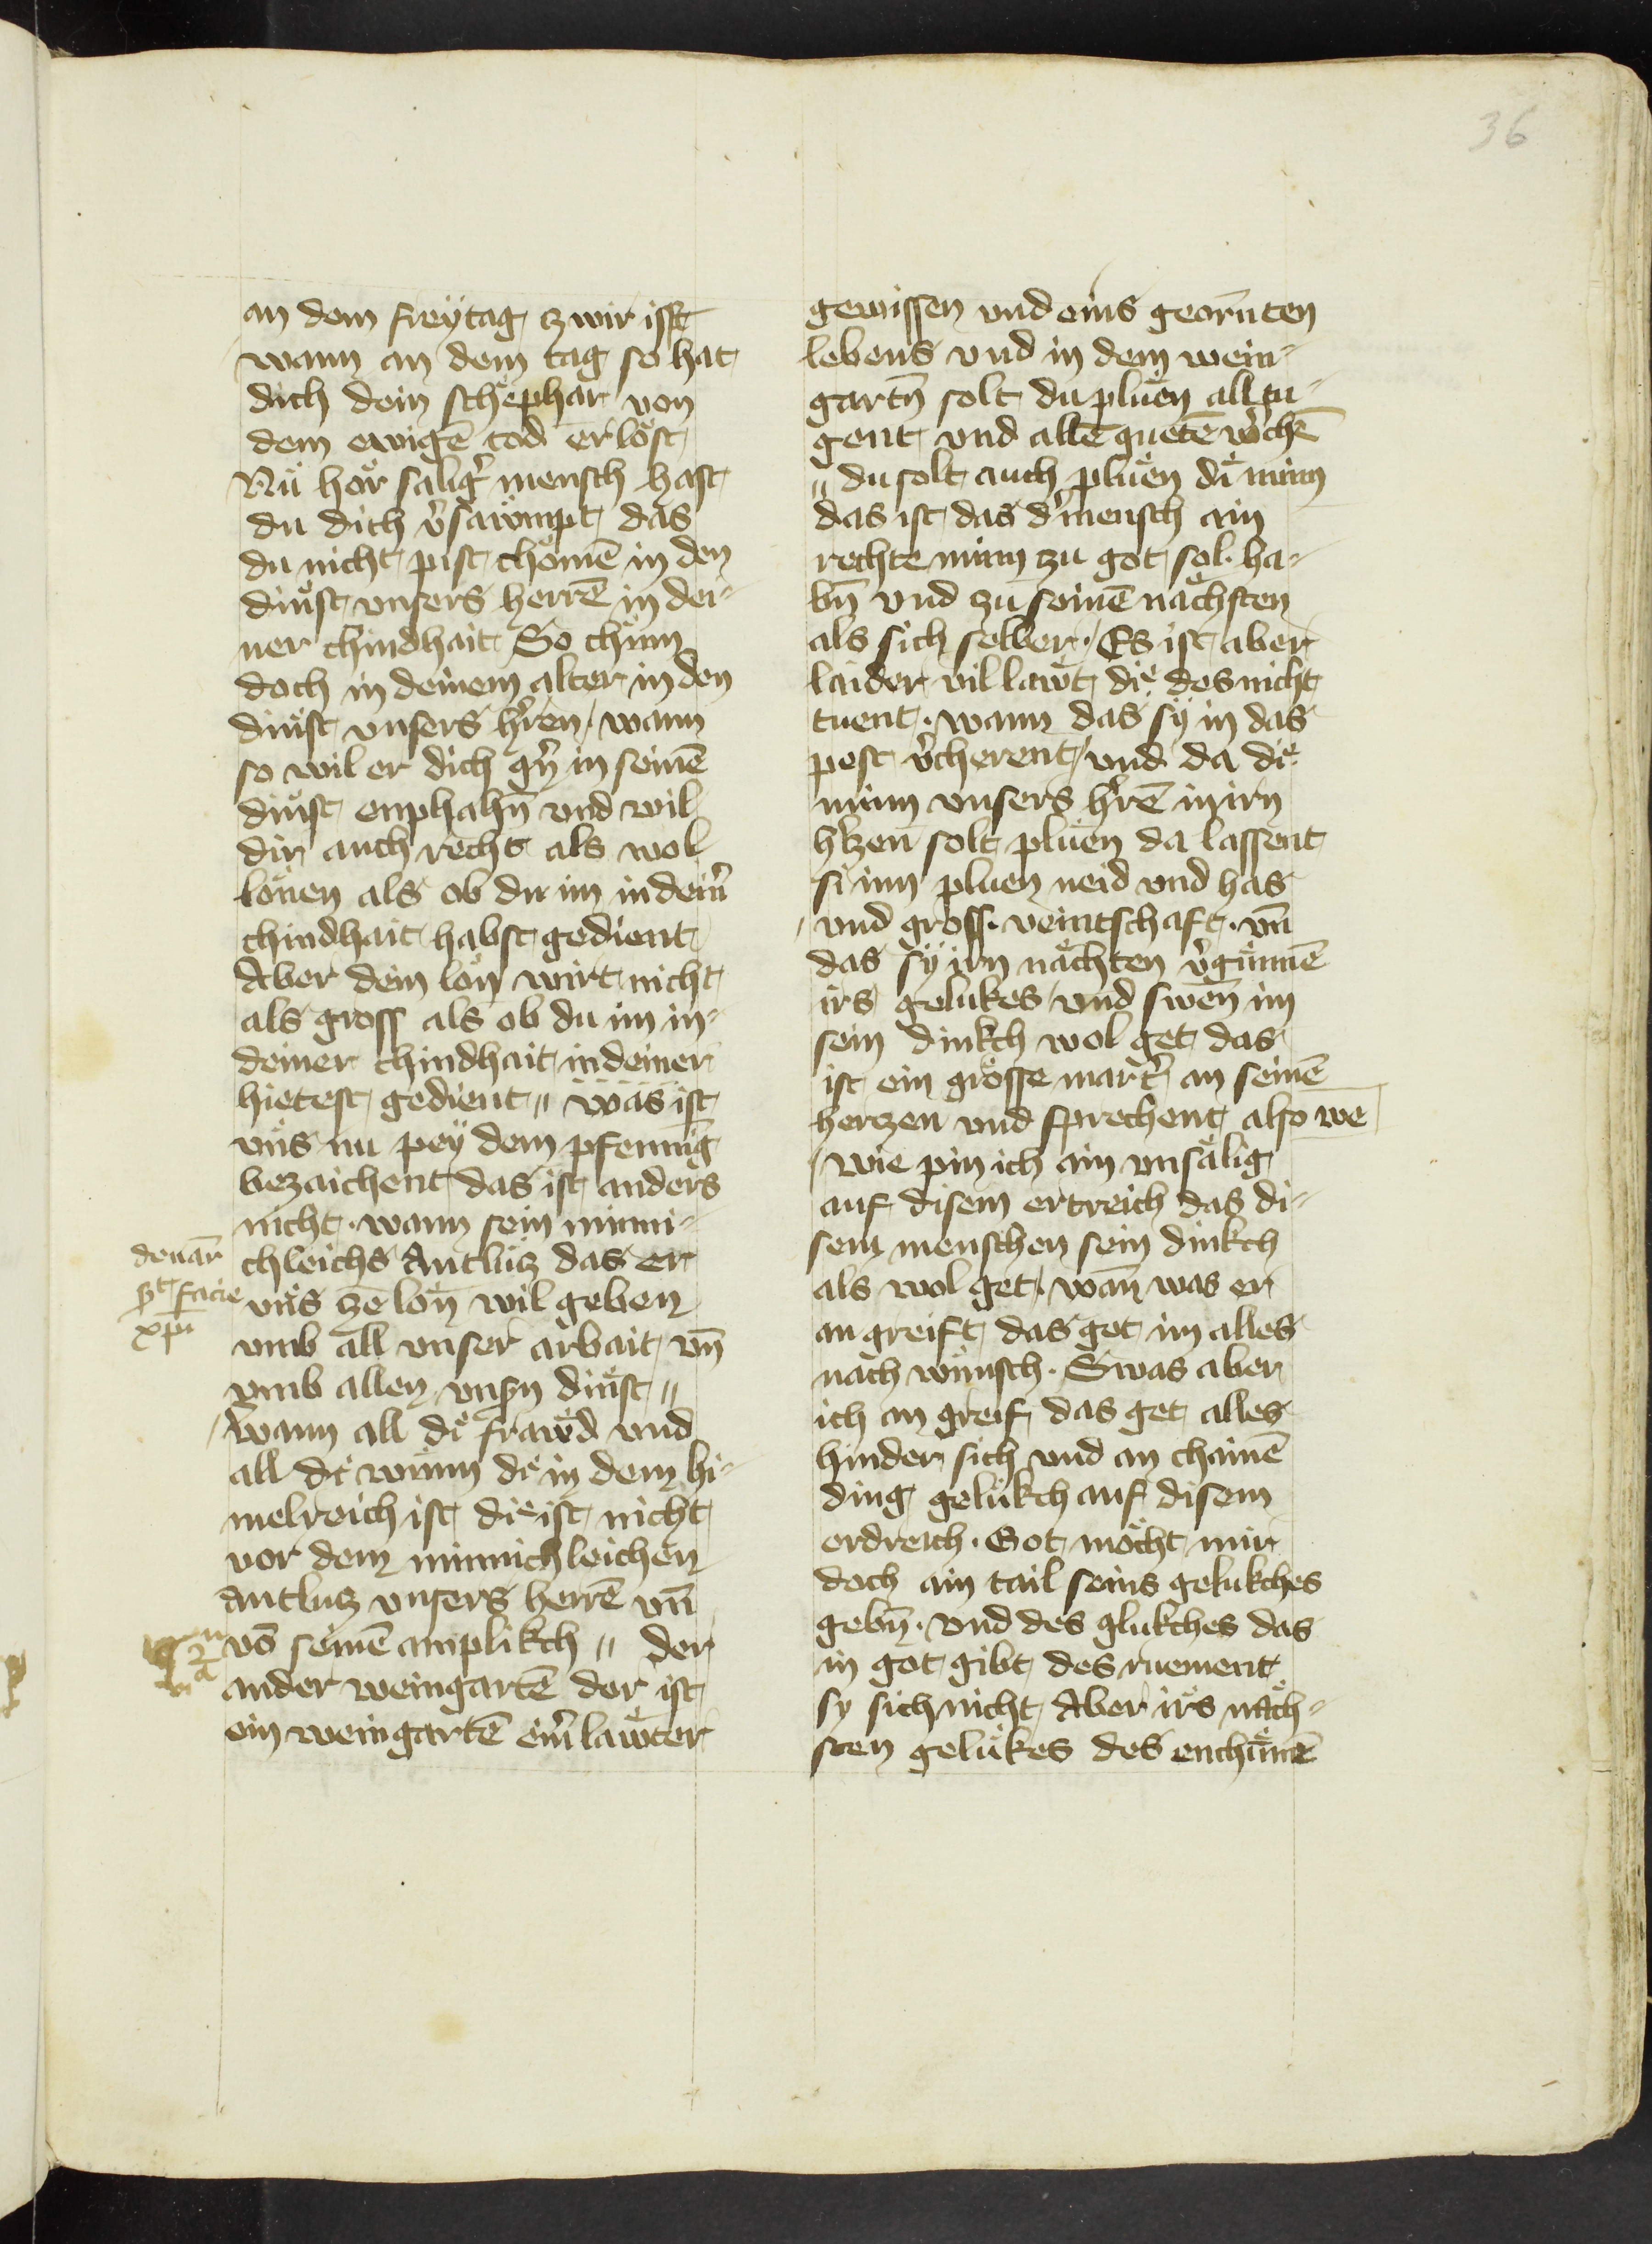 36
an dem freÿtag zwir isst
wann an dem tag so hat
dich dein schephar von
dem ewigē tod erlöst
Nu hör salig̛ mensch hast
du dich v̛sawmpt das
du nicht pist chömē in den
dinst vnsers herrē in dei„
ner chindhait So chum
doch in deinem alter in den
dinst vnsers h̛ren / wann
so wil er dich g̛n in seinē
dinst enphahn̄ vnd wil
dir auch recht als wol
lonen als ob du im in dein̛
chindhait habst gedient
Aber dein lon wirt nicht
als gross als ob du im in„
deiner chindhait in deiner
hietest gedient „ was ist
vns nu peÿ dem pfenning
bezaichent das ist anders
nicht · wann sein minni„
chleichs Antlutz das er
vns ze lon wil geben
vmb all vnser arbait vn̄
vmb allen vnsn̄ dinst „
/ wann all di frawd vnd
all di wunn di in dem hi„
melreich ist die ist nicht
vor dem minnichleichen
Antlutz vnsers herrē vn̄
vō seinē anplikch „ der
ander weingartē der ist
ein weingartē ein̛ lawter
denar̄
facie
xpi
gewissen vnd eins georn̄ten
lebens vnd in dem wein„
gartn̄ solt du pluen all tu„
gent vnd allē guetē w̛chē
„ du solt auch pluen di minn
das ist das d̛ mensch ain
rechte minn zu got sol · ha„
bn̄ vnd zu seinē nächsten
als sich selber · / Es ist aber
laider vil lawt die des nicht
tuent · wann das sÿ in das
pest v̛cherent / vnd da die
minn vnsers h̛rē in irn
h̛tzen solt pluen da lassent
si inn pluen neid vnd has
/ vnd gross · veintschaft · vn̄
das sÿ irn nächten v̛gunnē
irs gelukes / vnd swen im
sein dinkch wol get das
ist ein grosse mart̛ an seinē
hertzen vnd sprechent also we
/ wie pin ich ain vnsälig
auf disem ertreich das di„
sem menschen sein dinkch
als wol get · wan̄ was er
an greift das get im alles
nach wunsch · Swas aber
ich an greif das get alles
hinder sich vnd an chainē
ding gelukch auf disem
erdreich · Got möcht mir
doch ain tail seins gelukches
gebn̄ · vnd des glukches das
in got gibt des ruement
sy sich nicht Aber irs näch„
sten gelukes des enchunē